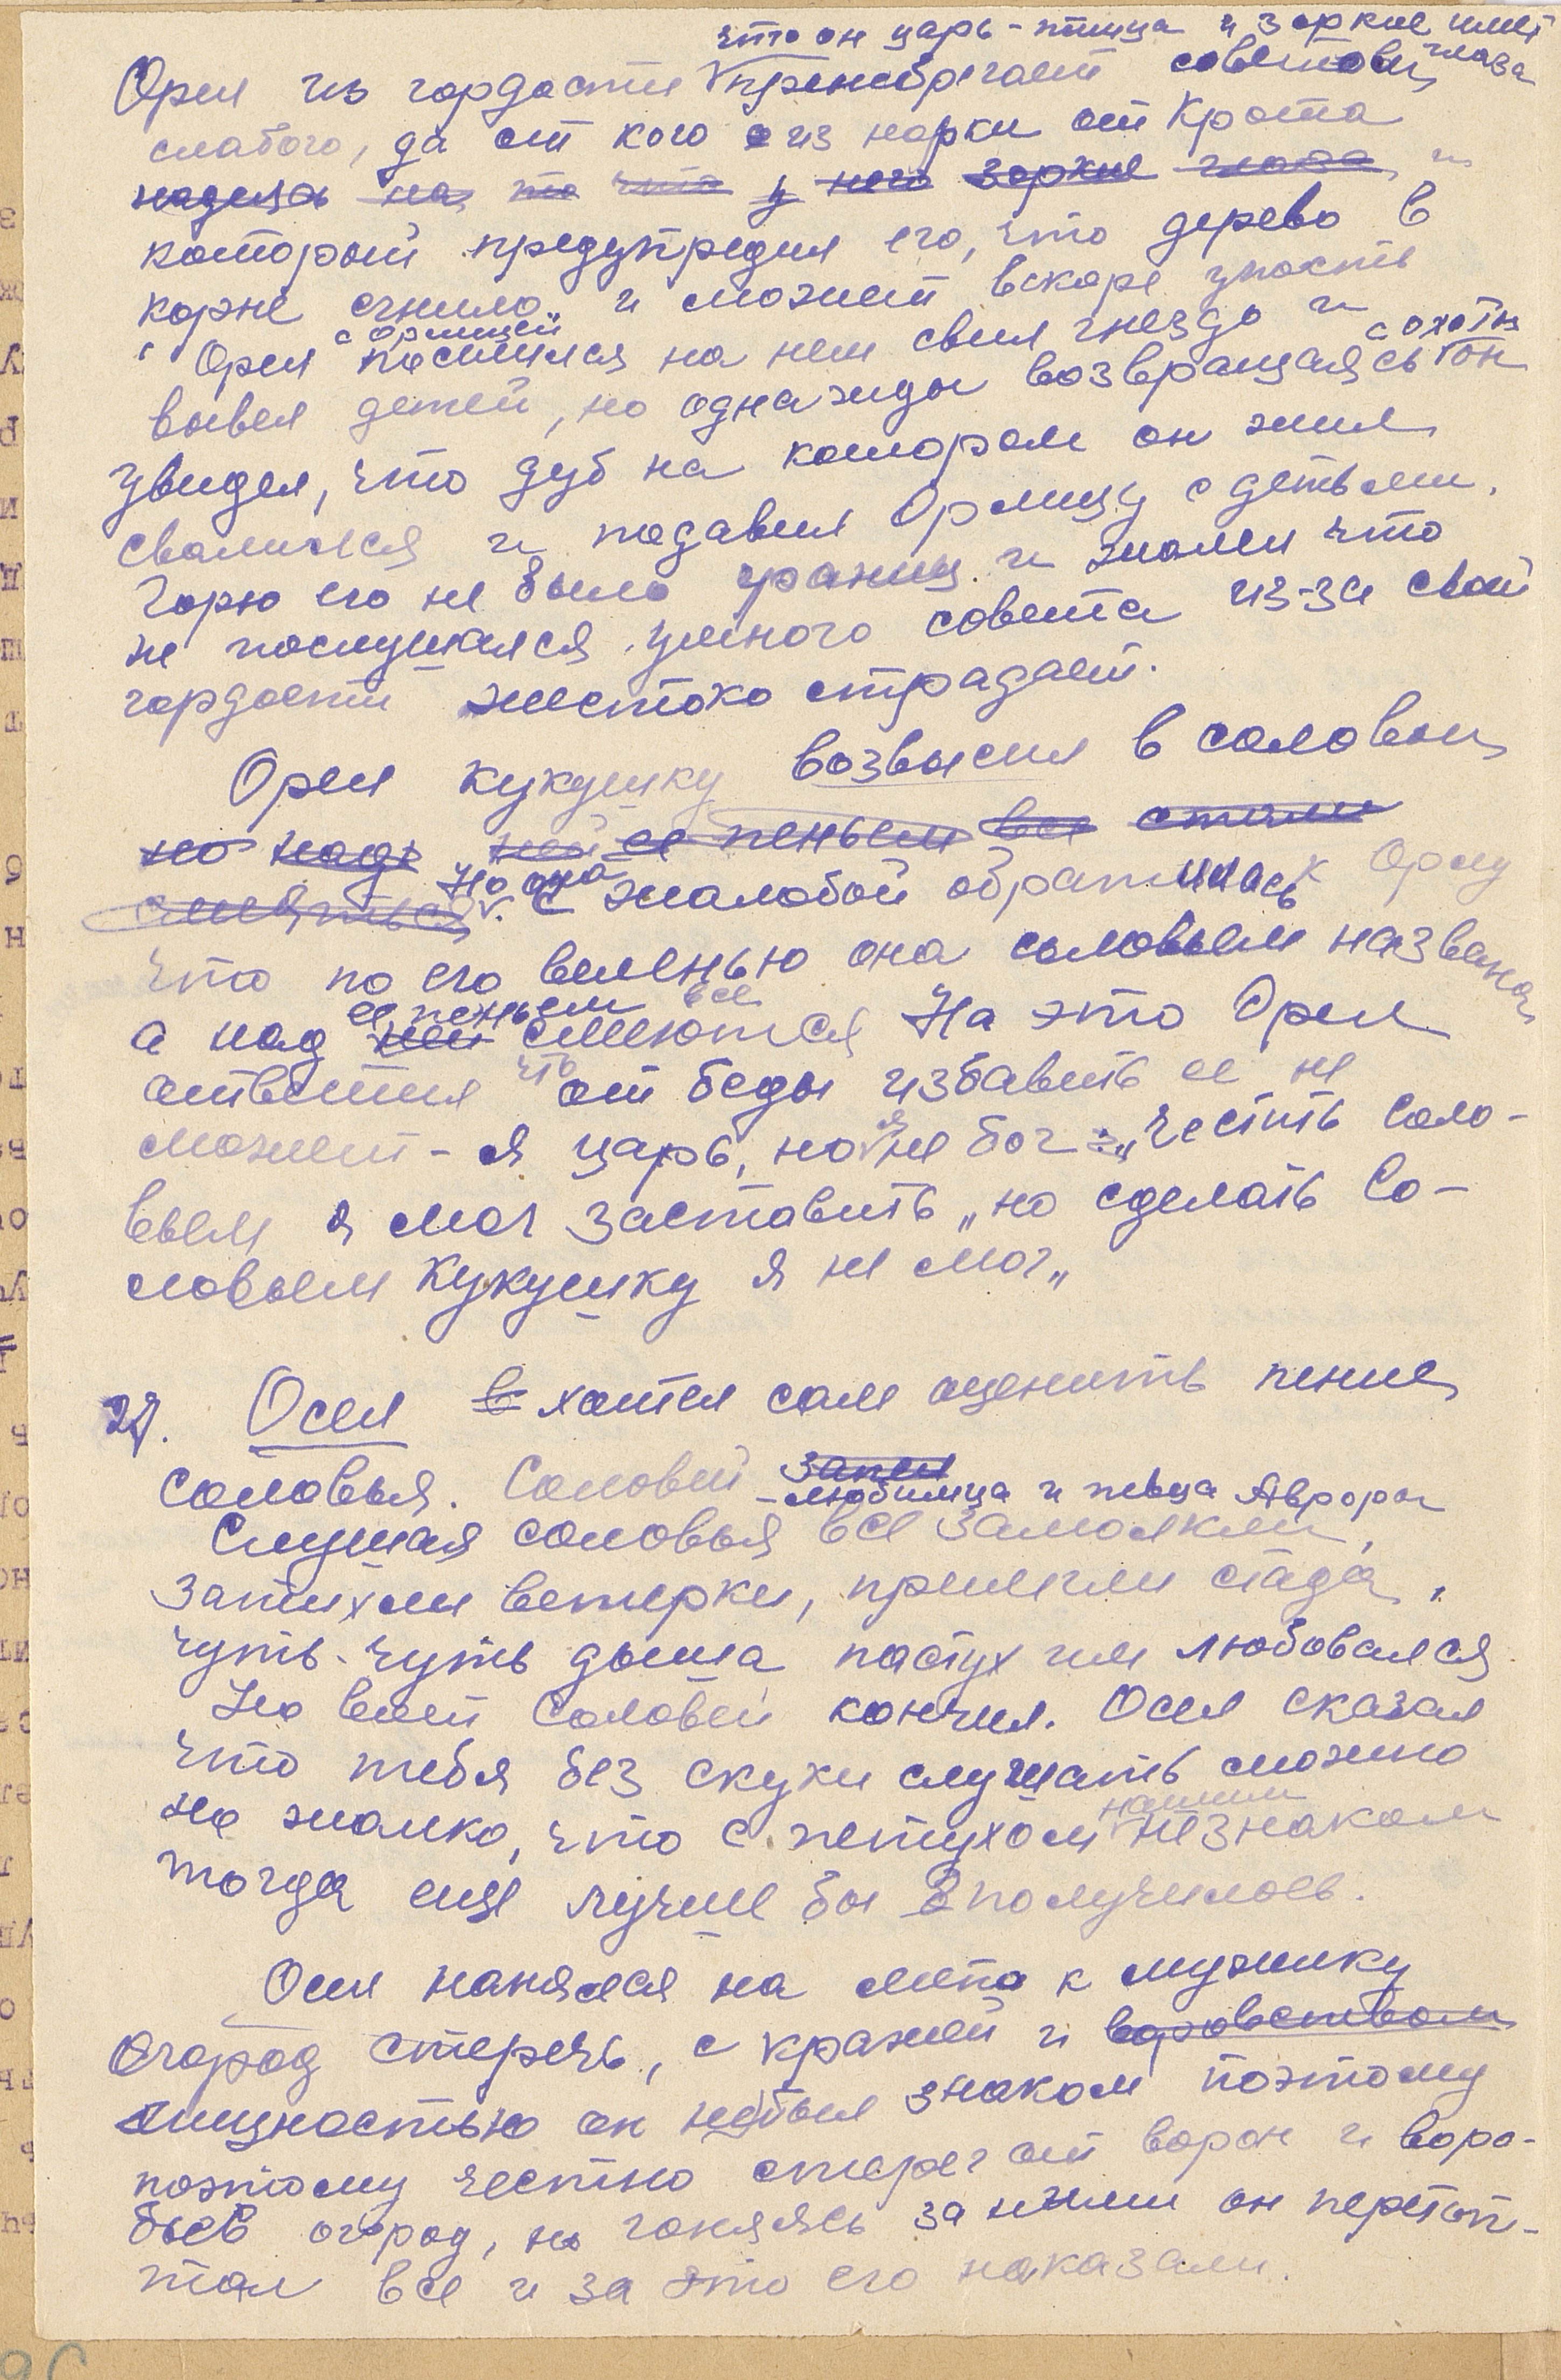 что он царь-птица и зоркие имеет глаза
Орел из гордости пренебрегает советом
слабого, да от кого из норки от Крота
надеясь на то что у него зоркие глаза, и
который предупредил его, что дерево в
корне сгнило и может вскоре упасть
с орлицей
Орел поселился на нем свил гнездо и
с охоты
вывел детей, но однажды возвращаясь он
увидел, что дуб на котором он жил
свалился и подавил Орлицу с детьми.
Горю его не было границ и жалея что
не послушался умного совета из-за своей
гордости жестоко страдает.
Орел кукушку возвысил в соловьи
но над ней ее пеньем все стали
смеяться. Но она с жалобой обратилась к Орлу
что по его веленью она соловьем названа
ее пеньем все
а над ней смеются На это Орел
ответил что от беды избавить ее не
может - я царь, но я не бог „честить Соло-
вьем я мог заставить „но сделать Со-
ловьем Кукушку я не мог„
27. Осел хотел сам оценить пение
соловья. Соловей запел
- любимца и певца Авроры
Слушая соловья все замолкли,
затихли ветерки, прилегли стада,
чуть-чуть дыша пастух им любовался
Но вот Соловей кончил. Осел сказал
что тебя без скуки слушать можно
но жалко, что с петухом нашим незнаком
тогда еще лучше бы получилось.
Осел нанялся на лето к мужику
Огород стеречь, с кражей и воровством
хищностью он не был знаком поэтому
поэтому честно стерег от ворон и воро-
бьев огород, но гоняясь за ними он перетоп-
тал все и за это его наказали.